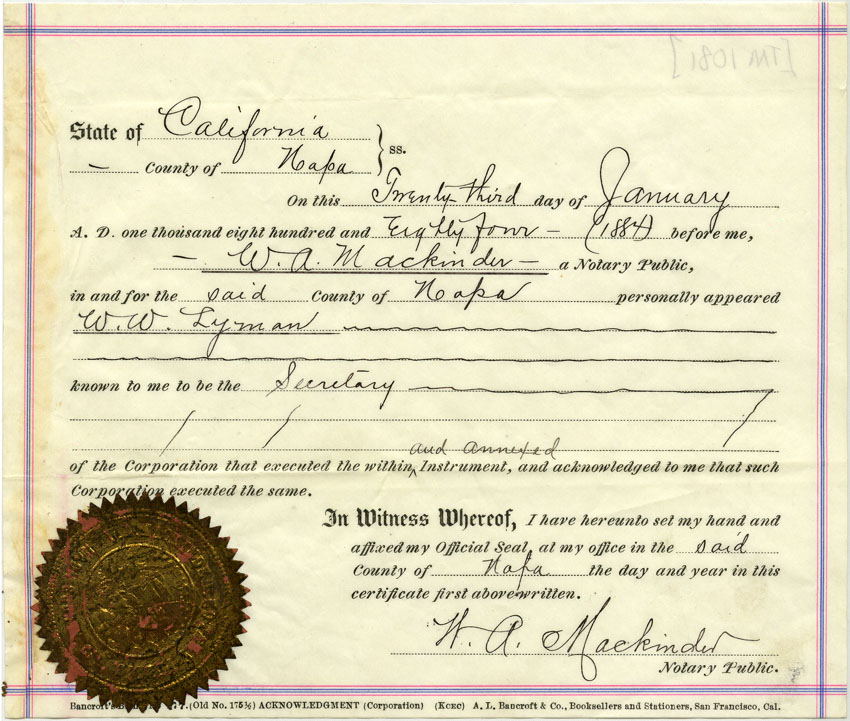 [TM 1081]
State of California
County of Napa } ss.
On this Twenty-third day of January
A. D. one thousand eight hundred and Eighty four – (1884) before me,
– W. A. Mackinder – a Notary Public,
in and for the said County of Napa personally appeared
W. W. Lyman
known to me to be the Secretary
and annexed
of the Corporation that executed the within ^ Instrument, and acknowledged to me that such
Corporation executed the same.
In Witness Whereof, I have hereunto set my hand and
affixed my Official Seal, at my office in the said
County of Napa the day and year in this
certificate first above written.
W. A. Mackinder
Notary Public.
(Old No. 175½) ACKNOWLEDGMENT (Corporation) (KCEC) A. L. Bancroft & Co., Booksellers and Stationers, San Francisco, Cal.